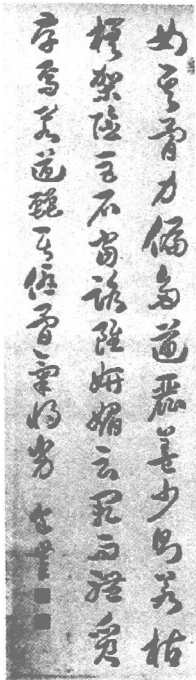 如其骨力偏多遒麗蓋少則若枯
槎架險巨石當路雖妍媚云闕而體質
存焉若遒麗居優骨氣將劣